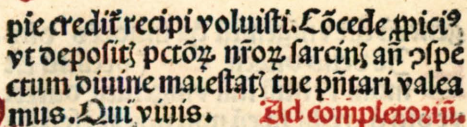 pie credit᷑ recipi voluisti. Cõcede ꝓpiciꝰ
vt depositꝫ pctõꝝ nr̃oꝝ sarcinꝫ añ ↄspe
ctum diuine maiestatꝫ tue pñtari valea
mus. Qui viuis. Ad completoriũ.